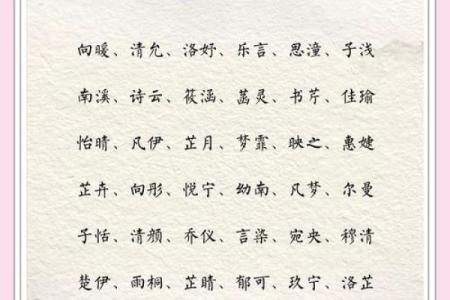 向暖、清允、洛妤、乐言、思潼、子浅
南溪、诗云、筱涵、菡灵、书芹、佳瑜
怡晴、凡伊、芷月、梦霏、映之、惠婕
芷卉、向彤、悦宁、幼南、凡梦、尔曼
子恬、清颜、乔仪、言染、宛央、穆清
楚伊、雨桐、芷晴、郁可、玖宁、洛芷